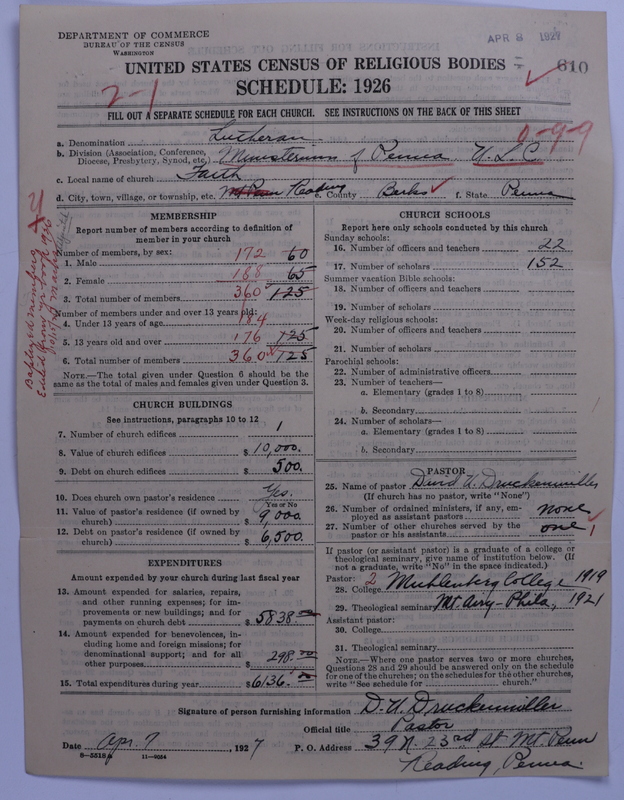 DEPARTMENT OF COMMERCE
BUREAU OF THE CENSUS
WASHINGTON
APR 8 1927
UNITED STATES CENSUS OF RELIGIOUS BODIES
610
SCHEDULE: 1926
2-1
FILL OUT A SEPARATE SCHEDULE FOR EACH CHURCH. SEE INSTRUCTIONS ON THE BACK OF THIS SHEET
0-9-9
a. Denomination Lutheran
b. Division (Association, Conference, Diocese, Presbytery, Synod, etc.) Ministerium of Penna U.L.C
c. Local name of church Faith
d. City, town, village, or township, etc. Mt Penn Reading e. County Berks f. State Penna
MEMBERSHIP
Report number of members according to definition of member in your church
Number of members, by sex:
1. Male 172 60
2. Female 188 65
3. Total number of members 360 125
Number of members under and over 13 years old:
4. Under 13 years of age 184
5. 13 years old and over 176 125
6. Total number of members 360 125
NOTE.—The total given under Question 6 should be the same as the total of males and females given under Question 3.
Baptized members
CHURCH BUILDINGS
See instructions, paragraphs 10 to 12
7. Number of church edifices 1
8. Value of church edifices $ 10,000.
9. Debt on church edifices $ 500.
10. Does church own pastor's residence Yes.
Yes or No
11. Value of pastor's residence (if owned by church) $ 9,000
12. Debt on pastor's residence (if owned by church) $ 6,500.
EXPENDITURES
Amount expended by your church during last fiscal year
13. Amount expended for salaries, repairs, and other running expenses; for improvements or new buildings; and for payments on church debt $ 5838.00
14. Amount expended for benevolences, including home and foreign missions; for denominational support; and for all other purposes $ 298.00
15. Total expenditures during year $ 6136.00
CHURCH SCHOOLS
Report here only schools conducted by this church
Sunday schools:
16. Number of officers and teachers 22
17. Number of scholars 152
Summer vacation Bible schools:
18. Number of officers and teachers
19. Number of scholars
Week-day religious schools:
20. Number of officers and teachers
21. Number of scholars
Parochial schools:
22. Number of administrative officers
23. Number of teachers—
a. Elementary (grades 1 to 8)
b. Secondary
24. Number of scholars—
a. Elementary (grades 1 to 8)
b. Secondary
PASTOR
25. Name of pastor David U. Druckenmiller
(If church has no pastor, write "None")
26. Number of ordained ministers, if any, employed as assistant pastors none
27. Number of other churches served by the pastor or his assistants one 1
If pastor (or assistant pastor) is a graduate of a college or theological seminary, give name of institution below. (If not a graduate, write "No" in the space indicated.)
Pastor: 2
28. College Muhlenberg College 1919
29. Theological seminary Mt. Airy-Phila, 1921
Assistant pastor:
30. College
31. Theological seminary
NOTE.—Where one pastor serves two or more churches, Questions 28 and 29 should be answered only on the schedule for one of the churches; on the schedules for the other churches, write "See schedule for church."
Signature of person furnishing information D. U. Druckenmiller
Official title Pastor
Date Apr. 7, 1927 P. O. Address 39 N. 23rd St. Mt. Penn
Reading, Penna.
8-5518a 11-9054